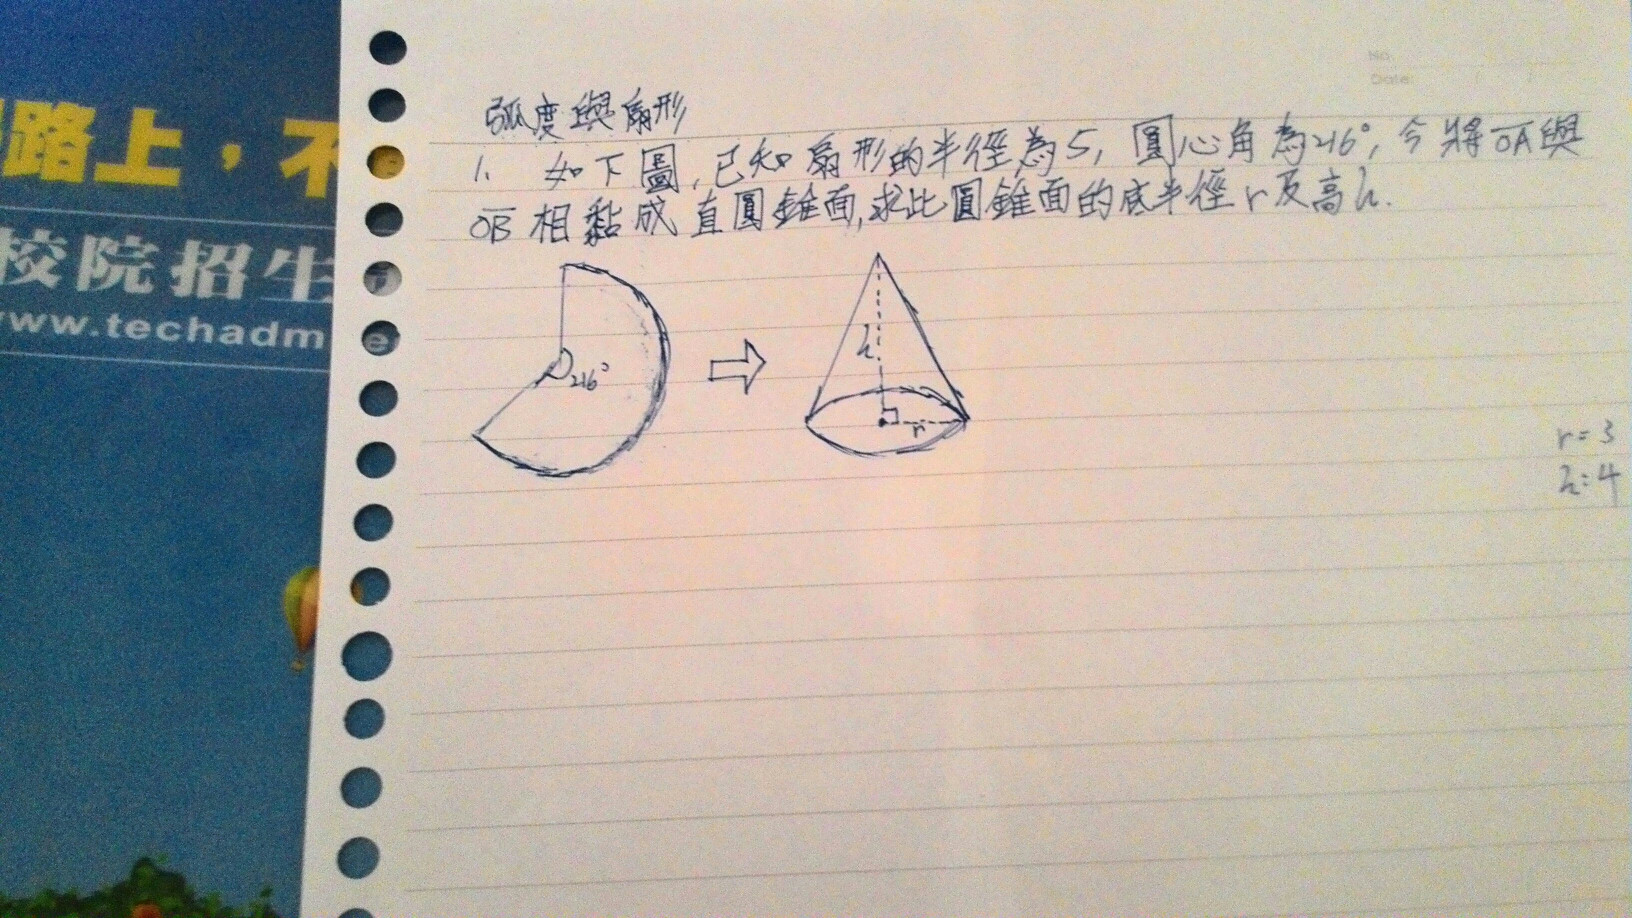 路上，不
校院招生
www.techadm
No.
Date
弧度與扇形
1. 如下圖,已知扇形的半徑為5, 圓心角為216°,今將OA與
OB相黏成直圓錐面,求此圓錐面的底半徑r及高h.
216°
h
r
r=3
h=4